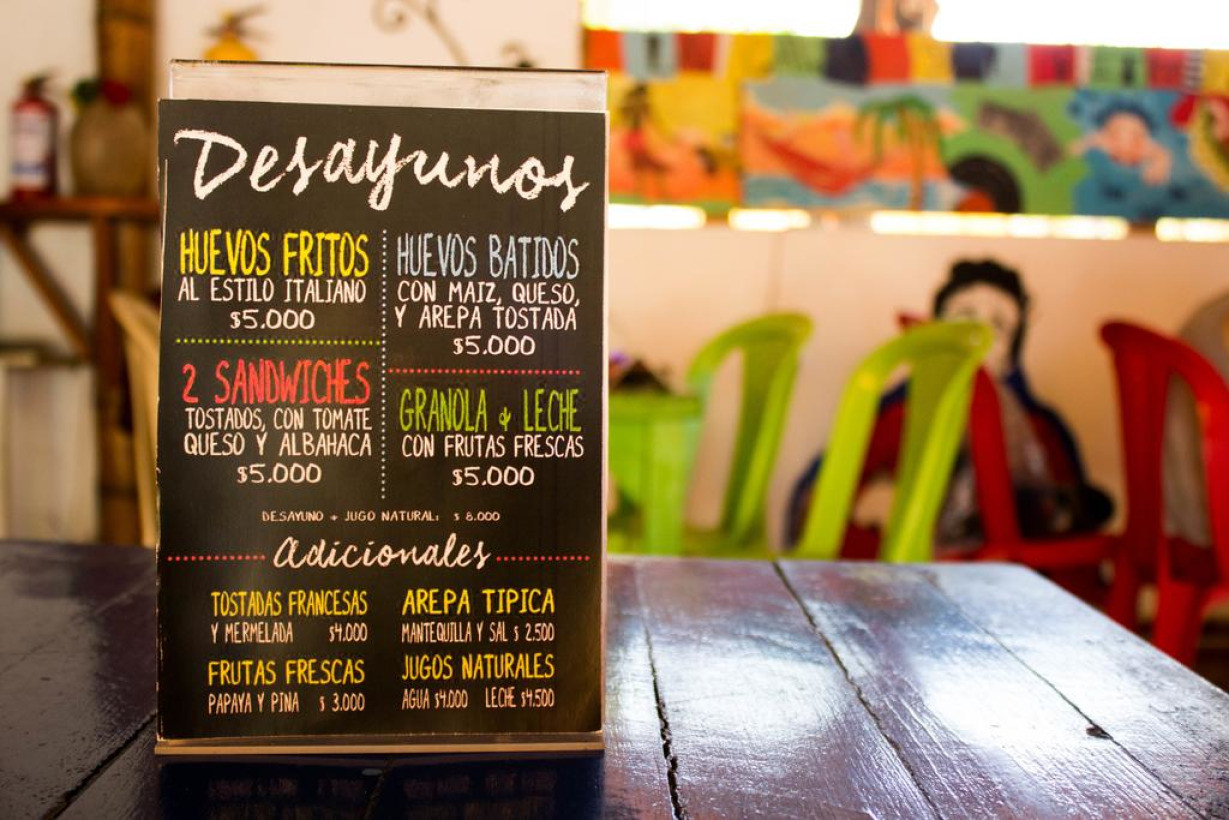 Desayunos
HUEVOS FRITOS
AL ESTILO ITALIANO
$5.000
HUEVOS BATIDOS
CON MAIZ, QUESO,
Y AREPA TOSTADA
$5.000
2 SANDWICHES
TOSTADOS, CON TOMATE
QUESO Y ALBAHACA
$5.000
GRANOLA & LECHE
CON FRUTAS FRESCAS
$5.000
DESAYUNO + JUGO NATURAL: $ 8.000
Adicionales
TOSTADAS FRANCESAS
Y MERMELADA $4.000
AREPA TIPICA
MANTEQUILLA Y SAL $ 2.500
FRUTAS FRESCAS
PAPAYA Y PINA $ 3.000
JUGOS NATURALES
AGUA $4.000 LECHE $4.500